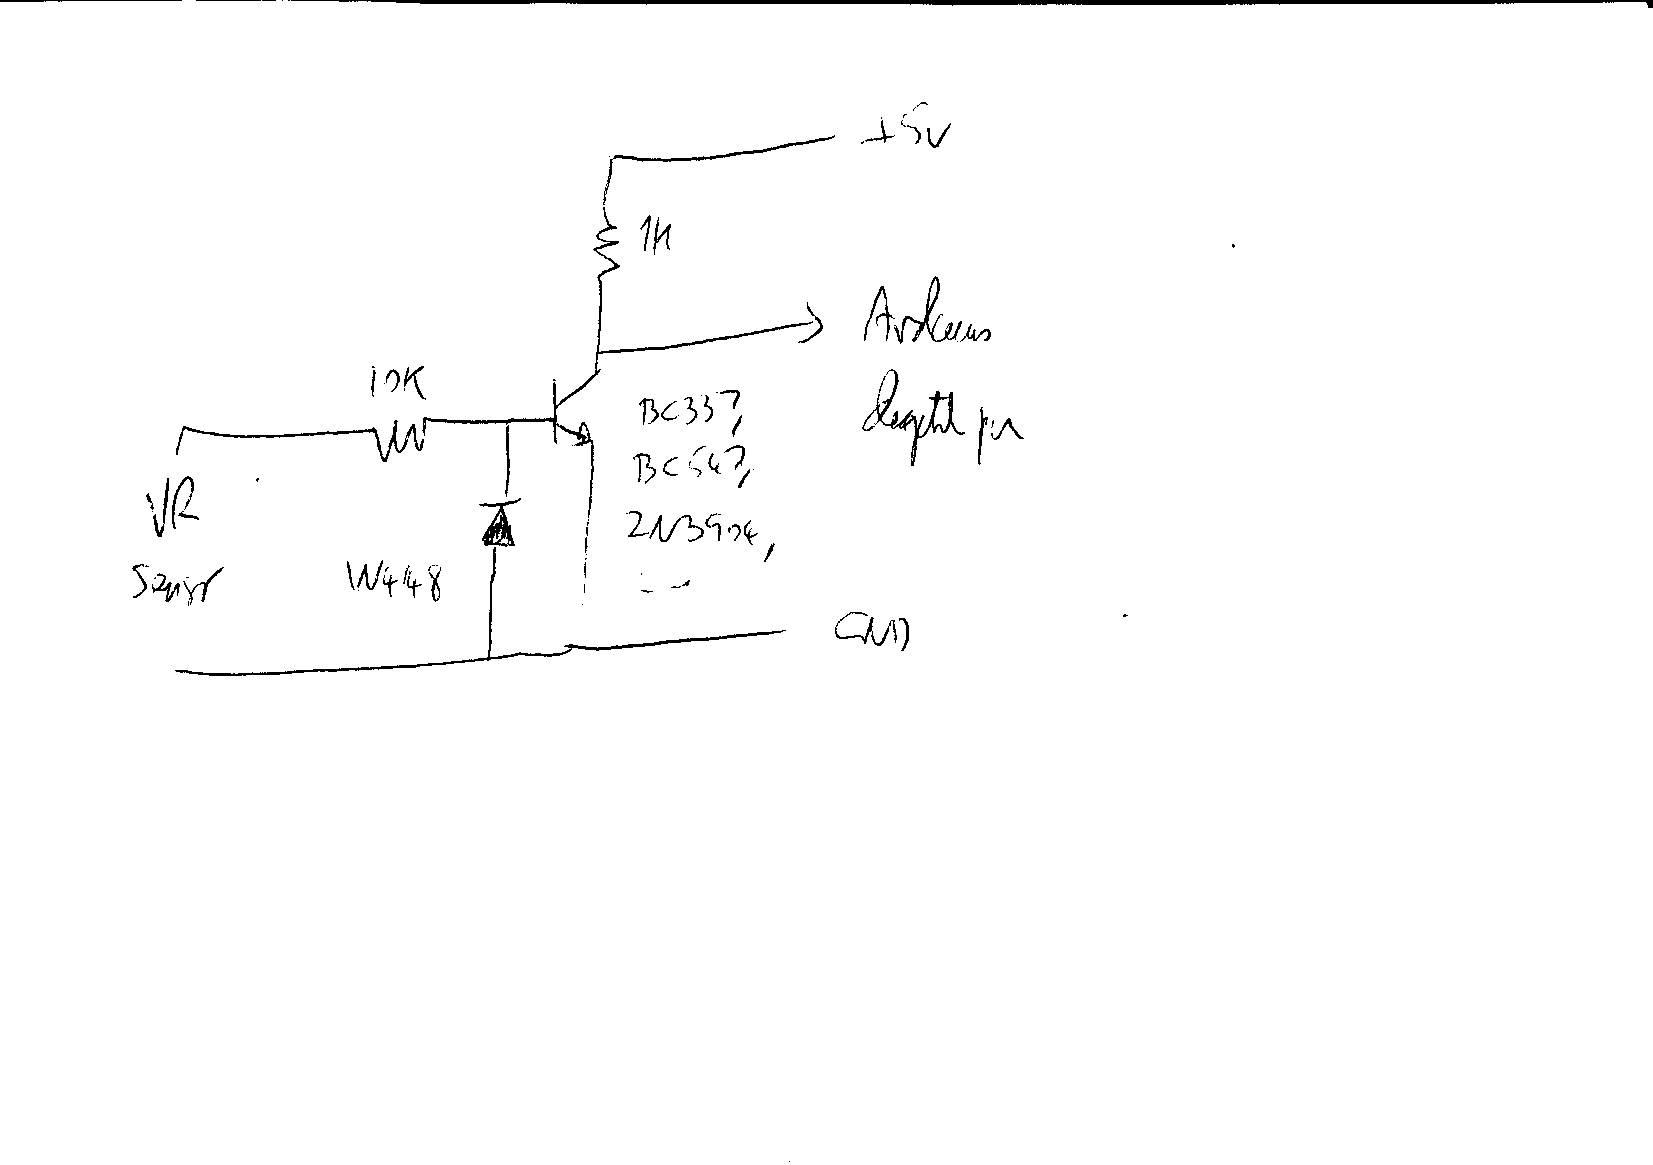 +5v
1K
Arduino
digital pin
10K
BC337,
BC547,
2N3904,
...
VR
Sensor
1N4448
GND